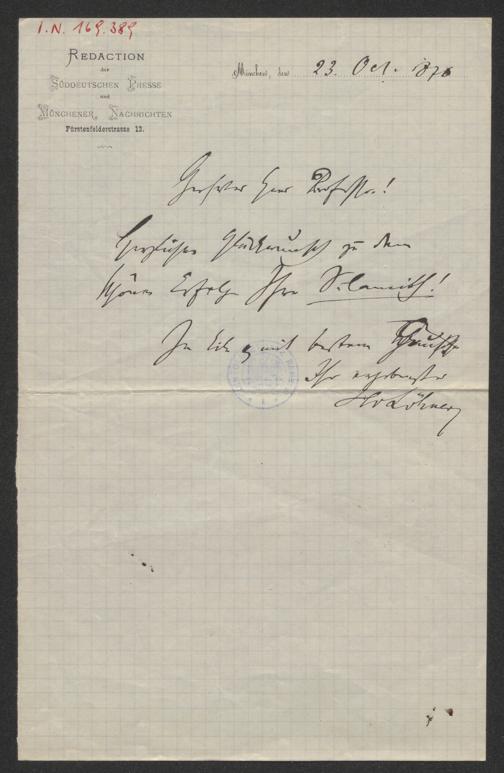 I.N. 169.389
REDACTION
der
SÜDDEUTSCHEN PRESSE
und
MÜNCHENER NACHRICHTEN
Fürstenfelderstrasse 13.
München, den 23. Oct. 1876
Geehrter Herr Professor!
Herzlichen Glückwunsch zu dem
schönen Erfolge Ihrer Sulamith!
In Eile mit bestem
Ihr ergebenster